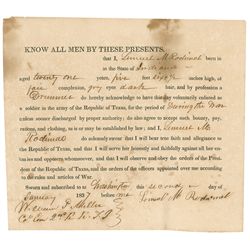 KNOW ALL MEN BY THESE PRESENTS,
that I, Lemuel M Rodimal born
in the State of Indiana
aged twenty one years, five feet inches high, of
fair complexion, gry eyes dark hair, and by profession a
do hereby acknowledge to have that day voluntarily enlisted
a soldier in the army of the Republic of Texas, for the period of During the War
unless sooner discharged by proper authority; do also agree to accept such bounty, pay,
rations, and clothing, as is or may be established by law; and I Lemuel M
Rodimal do solemnly swear that I will bear true faith and allegiance to
the Republic of Texas, and that I will serve her honestly and faithfully against all her en-
emies and opposers whomsoever, and that I will observe and obey the orders of the Presi-
dent of the Republic of Texas, and the orders of officers appointed over me according to
the rules and articles of War.
Sworn and subscribed to at Washington this second day of
January 1837 before me Lemuel M Rodimal
William F Miller